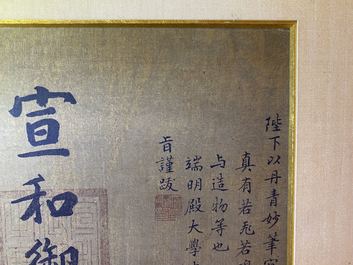 陛下以丹青妙筆
真有若死若
与造物等也
端明殿大學
旨謹跋
宣和御